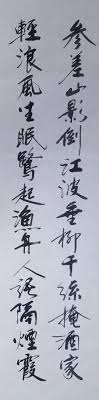 參差山影倒江波垂柳千絲掩酒家
輕浪風生眠鷺起漁舟人語隔煙霞